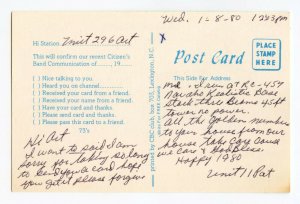 Hi Station Unit 296 Art
This will confirm our recent Citizen's
Band Communication of , 19
( ) Nice talking to you.
( ) Heard you on channel
( ) Received your card from a friend.
( ) Received your name from a friend.
( ) Have your card and thanks.
( ) Please send your card. Thanks.
( ) Please pass this card to a friend.
73's
Hi Art
I want to said I am
sorry for taking so long
to send you a card hope
you get it please forgive
printed by CBC club, box 703, Lexington, N.C.
Wed. 1-8-80 1223pm
X
Post Card
This Side For Address
PLACE
STAMP
HERE
me
Beams 45 ft
tower no power.
All the Golden members
to your house from our
house take care cause
we care &
Happy 1980
Unit 11 Pat